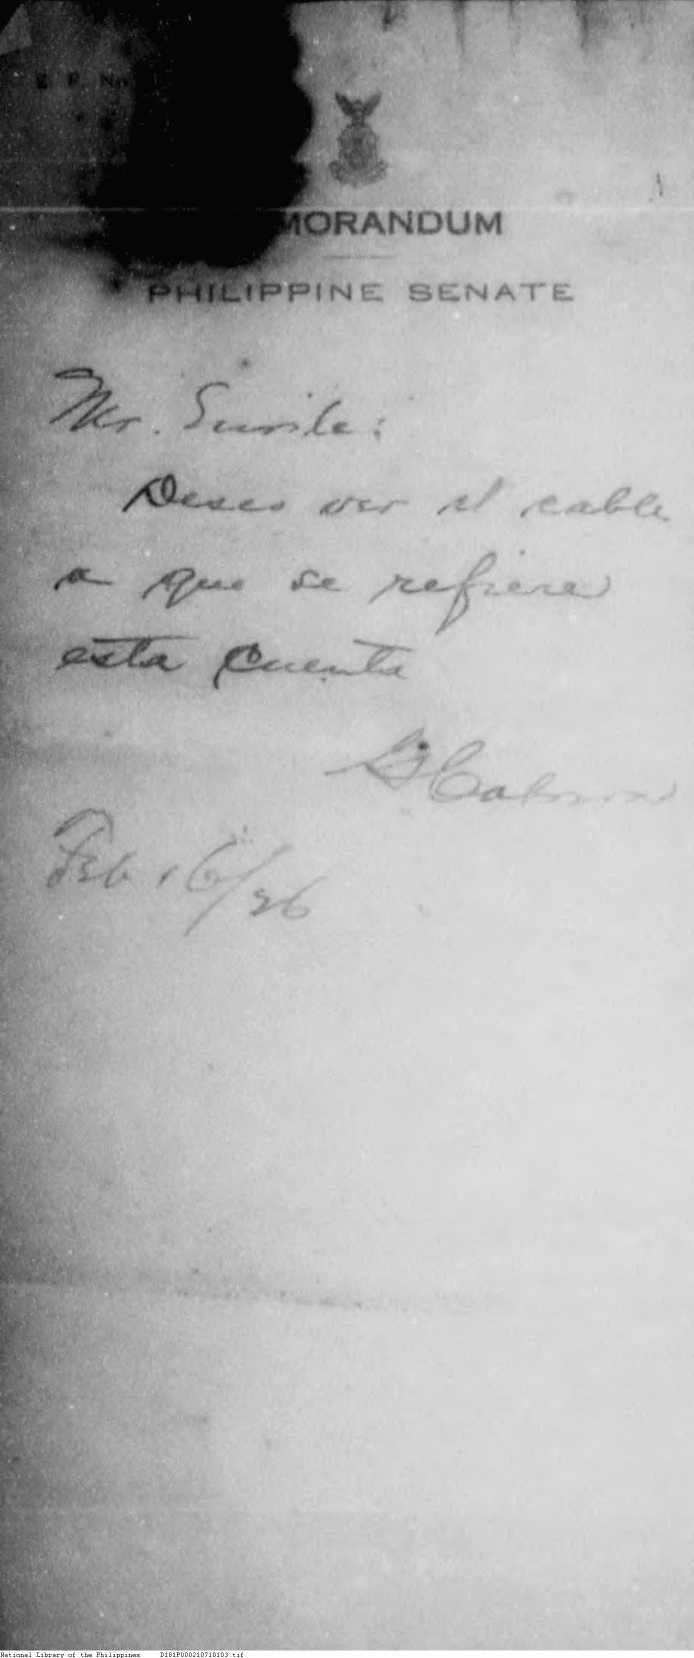 S. P. No.
MORANDUM
PHILIPPINE SENATE
Mr. Surile:
Deseo ver el cable
a que se refiere
esta cuenta
Feb 16/26
National Library of the Philippines D181P000210710103.tif